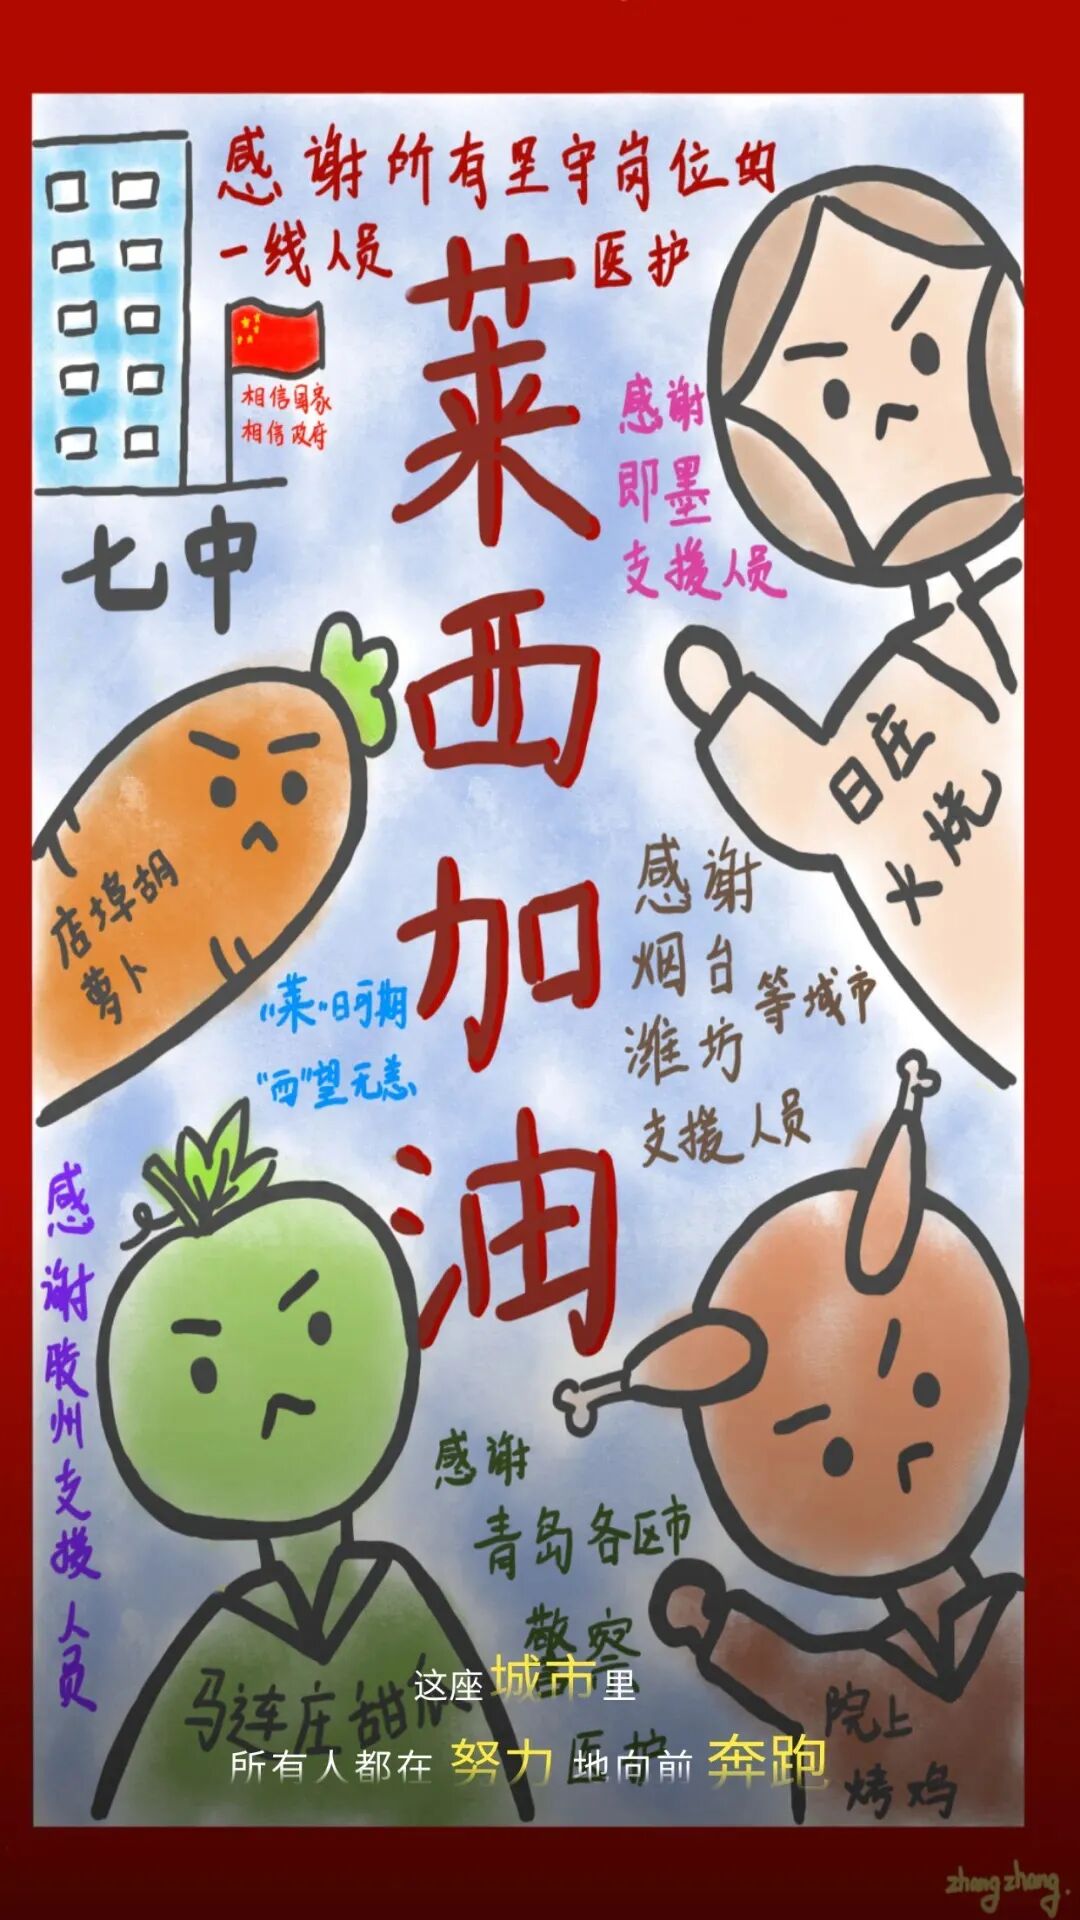 感谢所有坚守岗位的
一线人员 医护
莱西加油
相信国家
相信政府
七中
感谢
即墨
支援人员
日庄
火烧
店埠胡
萝卜
"莱"日可期
"西"望无恙
感谢
烟台
潍坊
等城市
支援人员
感谢胶州支援人员
感谢
青岛各区市
警察
医护
马连庄甜瓜
院上
烤鸡
这座城市里
所有人都在努力地向前奔跑
zhangzhang.